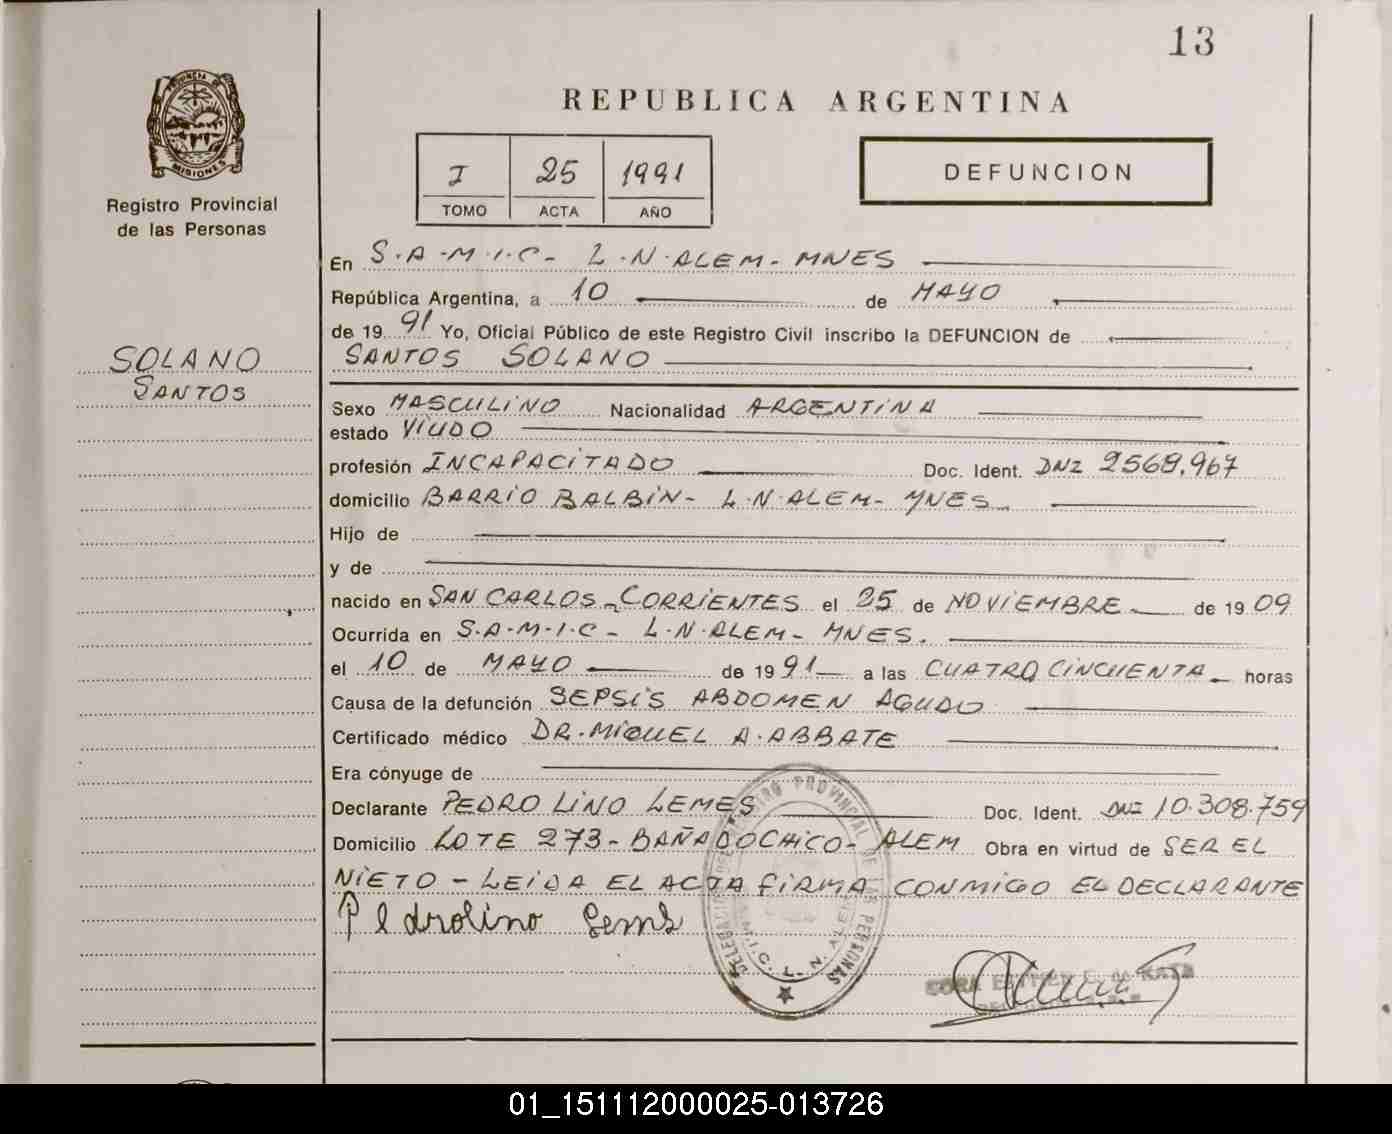 13
REPUBLICA ARGENTINA
PROVINCIA DE
MISIONES
Registro Provincial
de las Personas
I 25 1991
TOMO ACTA AÑO
DEFUNCION
En S.A.M.I.C- L.N.ALEM- MNES
República Argentina, a 10 de MAYO
de 19 91 Yo, Oficial Público de este Registro Civil inscribo la DEFUNCION de
SANTOS SOLANO
SOLANO
SANTOS
Sexo MASCULINO Nacionalidad ARGENTINA
estado VIUDO
profesión INCAPACITADO Doc. Ident. DNI 2568.967
domicilio BARRIO BALBIN- L.N.ALEM- MNES
Hijo de
y de
nacido en SAN CARLOS-CORRIENTES el 25 de NOVIEMBRE de 19 09
Ocurrida en S.A.M.I.C- L.N.ALEM- MNES.
el 10 de MAYO de 19 91 a las CUATRO CINCUENTA horas
Causa de la defunción SEPSIS ABDOMEN AGUDO
Certificado médico DR.MIGUEL A.ABBATE
Era cónyuge de
Declarante PEDRO LINO LEMES Doc. Ident. DNI 10.308.759
Domicilio LOTE 273-BAÑADOCHICO- ALEM Obra en virtud de SER EL
NIETO - LEIDA EL ACTA FIRMA CONMIGO EL DECLARANTE
Pedrolino Lemes
PROVINCIAL DE LAS PERSONAS
L. N. ALEM
01_151112000025-013726